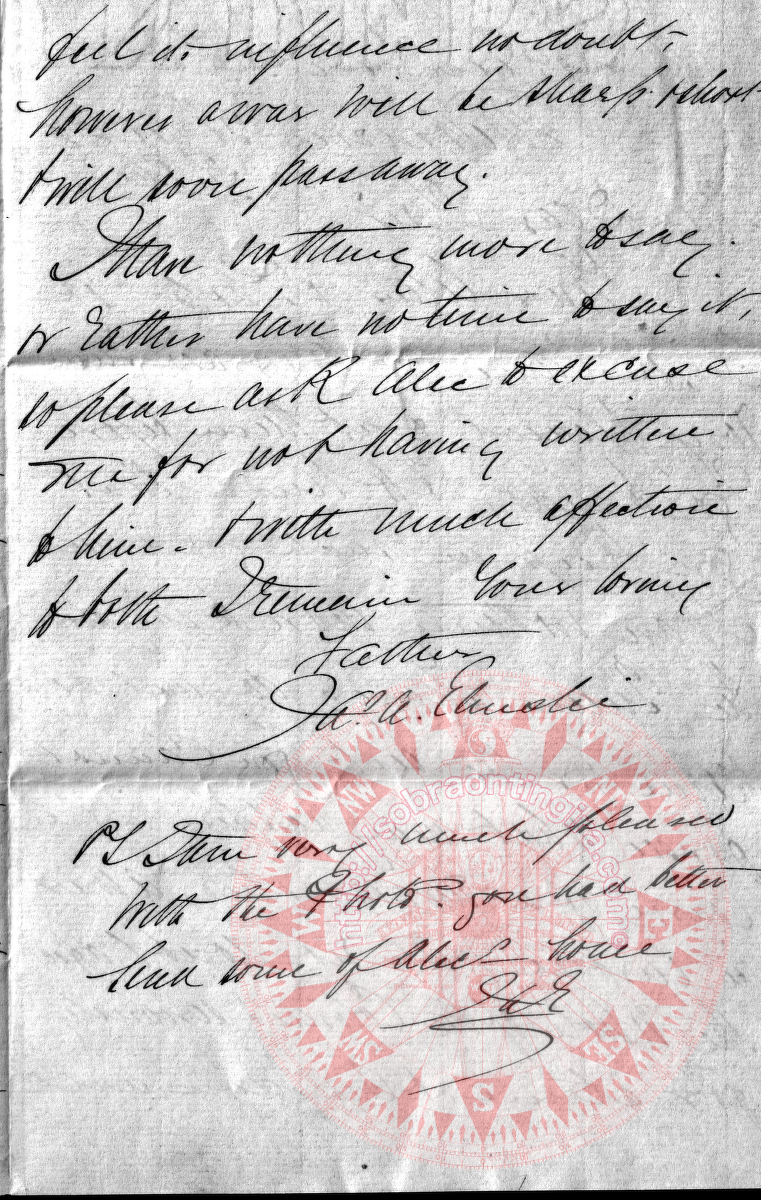 feel its influence no doubt,
however a war will be sharp & short
& will soon pass away.
I have nothing more to say.
or rather have no time to say it,
so please ask Alec to excuse
me for not having written
to him. & with much affection
to both I remain Your loving
Father
Jas. A. Elmslie
PS I am very much pleased
with the Photos. you had better
send some of Alecs home
JAE
http://sobraontingira.com
NW
E
SE
S
SW
W